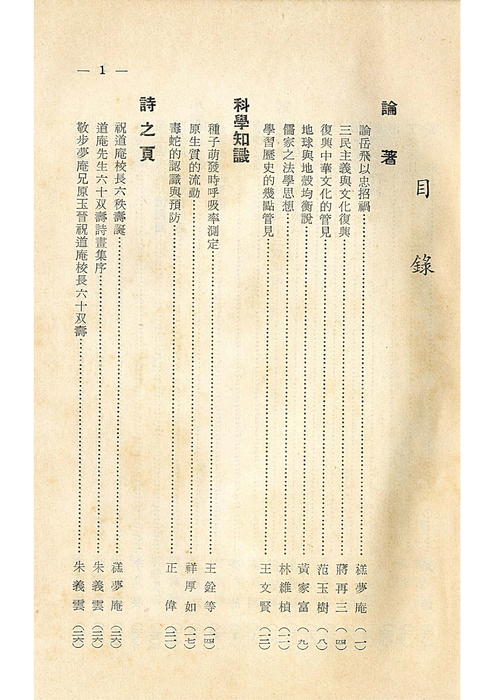 目錄
論著
論岳飛以忠招禍 禚夢庵 (一)
三民主義與文化復興 蔣再三 (四)
復興中華文化的管見 范玉樹 (八)
地球與地殼均衡說 黃家富 (九)
儒家之法學思想 林維楨 (一一)
學習歷史的幾點管見 王文賢 (一三)
科學知識
種子萌發時呼吸率測定 王銓等 (一四)
原生質的流動 祥厚如 (一七)
毒蛇的認識與預防 正偉 (二一)
詩之頁
祝道庵校長六秩壽誕 禚夢庵 (二六)
道庵先生六十双壽詩畫集序 朱義雲 (二六)
敬步夢庵兄原玉晉祝道庵校長六十双壽 朱義雲 (二六)
— 1 —